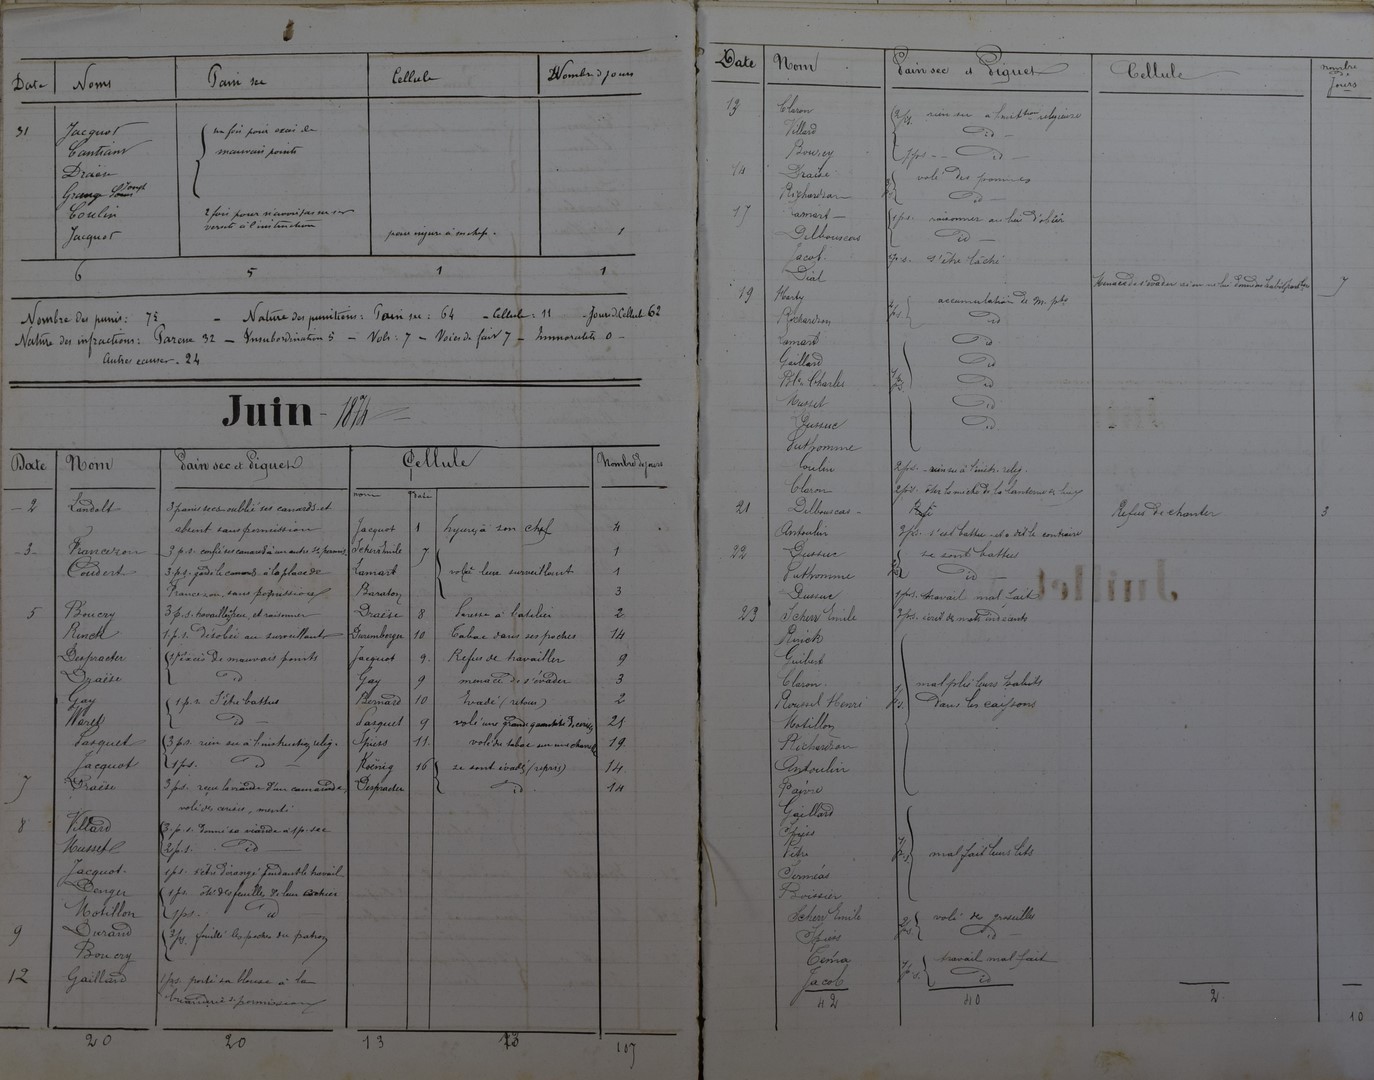 Date Noms Pain sec Cellule Nombre d jours
31 Jacquot une fois pour excès de
Cantians mauvais points
Draëse
Grange Joseph
Coulin 2 fois pour n'avoir pas su son
verset à l'instruction
Jacquot pour injure à un chef. 1
6 5 1 1
Nombre des punis: 75 – Nature des punitions: Pain sec: 64 – Cellule: 11 – Jours d. Cellule 62
Nature des infractions: Paresse 32 – Insubordination 5 – Vols: 7 – Voies de fait 7 – Immoralités 0 –
Autres causes. 24
Juin - 1874
Date Nom Pain sec et Piquet Cellule Nombre de jours
nom
2 Landolt 3 pains secs oublié ses canards et
absent sans permission Jacquot 1 Injures à son chef 4
3 Francezon 3 p.s. confié ses canards à un autre s. permis. Scherr Emile 7 1
Coudert 3 p.s. gardé le canards à la place de Lamart volé leur surveillant 1
Francezon, sans permission Baraton 3
5 Bouery 3 p.s. travaillé peu, et raisonner Draëse 8 Paresse à l'atelier 2
Rinck 1 p.s. désobéi au surveillant Daremberger 10 Tabac dans ses poches 14
Despracter excès de mauvais points Jacquot 9. Refus de travailler 9
Draëse id Gay 9 menacé de s'évader 3
Gay 1 p.s. s'être battus Bernard 10 Evadé (retour) 2
Waret id – Pasquet 9 volé une grande quantité de 21
Pasquet 3 p.s. rien su à l'instruction relig. Spiess 11. volé du tabac 19
Jacquot 1 p.s. id – Koënig 16 se sont évadés (repris) 14
7 Draëse 3 p.s. reçu la viande d'un camarade, Despracter id 14
volé des cerises, menti
8 Villard 3 p.s. donné sa viande à 1 p. sec
Musset 2 p.s. id –
Jacquot. 1 p.s. s'être dérangé pendant le travail
Denger 1 p.s. ôté des feuilles de leur cahier
Motillon 1 p.s. id
9 Durand 3 p.s. fouillé les poches du patron
Bouery
12 Gaillard 1 p.s. porté sa blouse à la
buanderie s. permission
20 20 13 107
Date Nom Pain sec et Piquet Cellule nombre de Jours
13 Claron 2 p.s. rien su à l'inst. religieuse
Villard id
Bouery 1 p.s. – – id –
14 Draëse volé des pommes
Richardson id –
17 Lamart – 1 p.s. raisonner au lieu d'obéir
Delbouscas id –
Jacob. p.s. s'être lâché
Dial 7
19 Harty accumulation de m. pts
Richardson id
Lamart id
Gaillard id
Charles id
Musset id
Dussuc id
Puthomme
Coulin 2 p.s. rien su à l'instr. relig.
Claron 2 p.s. ôter la mèche de la lanterne
21 Delbouscas – Refus de chanter 3
Antoulin 3 p.s. s'est battu et a dit le contraire
22 Dussuc se sont battus
Puthomme id –
Dussuc 1 p.s. travail mal fait
23 Scherr Emile 3 p.s. écrit de mots indécents
Rinck
Guibert
Claron mal plié leurs habits
Roussel Henri dans les caissons
Motillon
Richardson
Antoulin
Favre
Gaillard
Spiess
Vètre mal fait leurs lits
Serméas
Boissier
Scherr Emile volé de groseilles
Spiess id –
Cerna travail mal fait
Jacob id
42 40 2 10